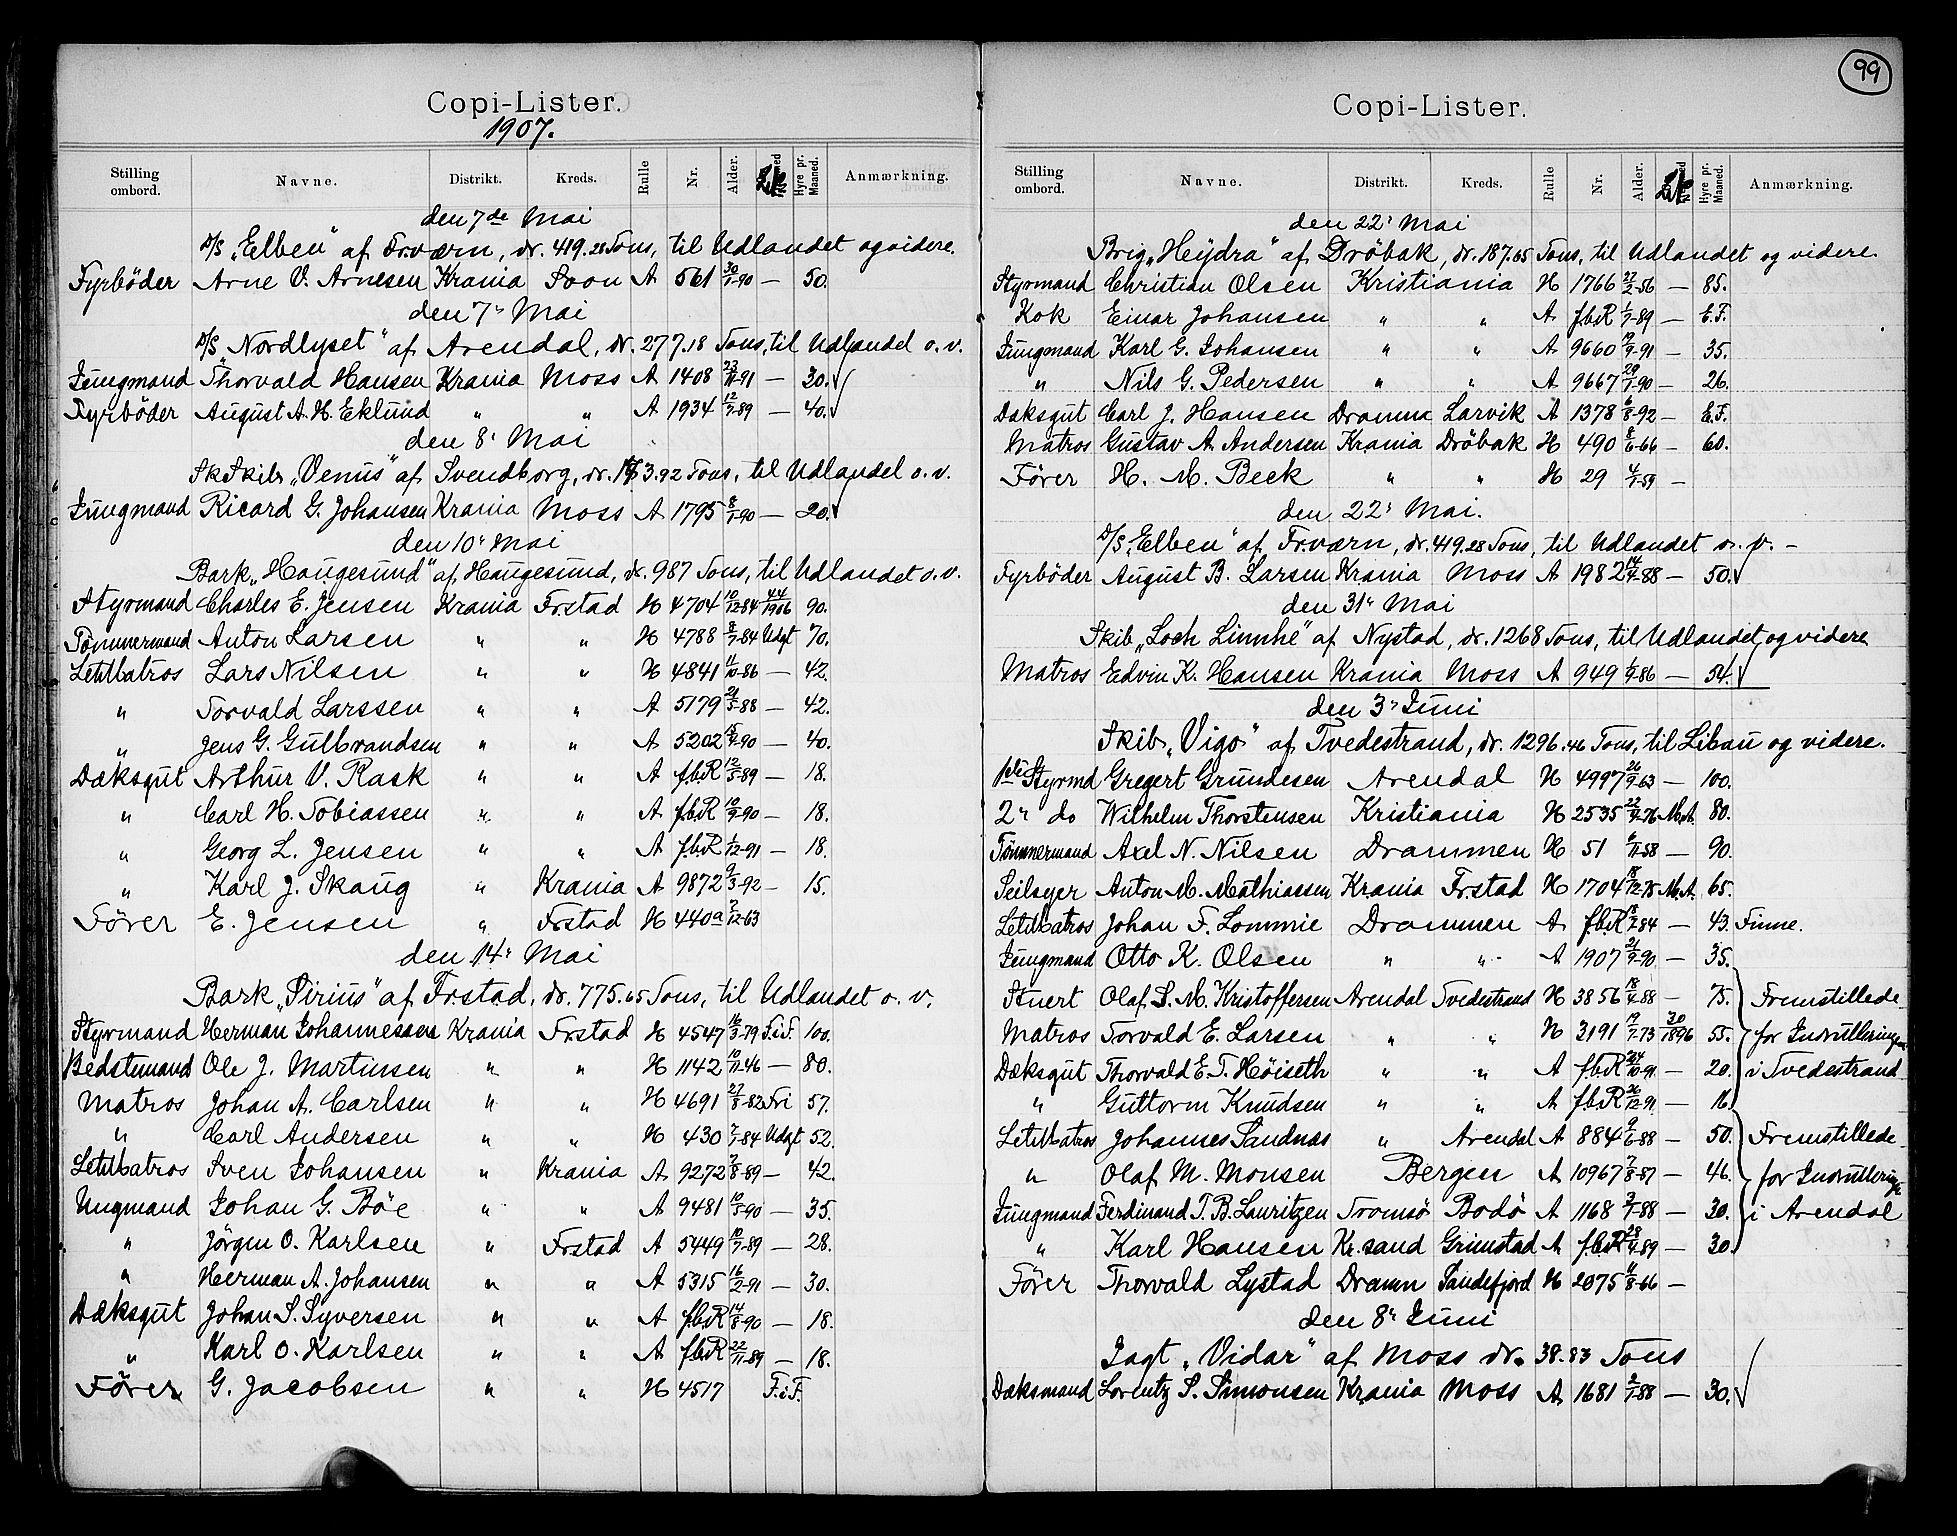 Copi-Lister.
1907.
Stilling ombord. Navne. Distrikt. Kreds. Rulle Nr. Alder. Hyre pr. Maaned. Anmærkning.
den 7de Mai
D/S „Elben“ af Fr.værn, dr. 419.28 Tons, til Udlandet og videre.
Fyrbøder Arne V. Arnesen Krania Soon A 561 30/1-90 — 50.
den 7" Mai
D/S „Nordlyset“ af Arendal, dr. 277.18 Tons, til Udlandet o. v.
Jungmand Thorvald Hansen Krania Moss A 1408 23/11-91 — 30.
Fyrbøder August A. H. Eklund " " A 1934 12/7-89 — 40.
den 8" Mai
Sk Skib „Venus“ af Svendborg, dr. 3.92 Tons, til Udlandet o. v.
Jungmand Ricard G. Johansen Krania Moss A 1795 8/1-90 — 20.
den 10" Mai
Bark „Haugesund“ af Haugesund, dr. 987 Tons, til Udlandet o. v.
Styrmand Charles E. Jensen Krania Frstad H 4704 10/12-84 44/1906 90.
Tømmermand Anton Larsen " " H 4788 8/7-84 Udgt 70.
LetMatros Lars Nilsen " " H 4841 11/10-86 — 42.
" Torvald Larssen " " A 5179 21/5-88 — 42.
" Jens G. Gulbrandsen " " A 5202 15/9-90 — 40.
Dæksgut Arthur V. Rask " " A fbR 12/5-89 — 18.
" Carl H. Tobiassen " " A fbR 10/9-90 — 18.
" Georg L. Jensen " " A fbR 1/12-91 — 18.
" Karl J. Skaug " Krania A 9872 9/3-92 — 15.
Fører E. Jensen " Frstad H 440a 7/12-63
den 14" Mai
Bark „Sirius“ af Fr.stad, dr. 775.65 Tons, til Udlandet o. v.
Styrmand Herman Johannessen Krania Frstad H 4547 16/3-79 F.i F. 100.
Bedstemand Ole J. Martinsen " " H 1142 10/11-46 — 80.
Matros Johan A. Carlsen " " H 4691 27/8-82 Fri 57.
" Carl Andersen " " H 430 7/1-84 Udgt 52.
LetMatros Sven Johansen " Krania A 9272 7/8-89 — 42.
Ungmand Johan G. Bøe " " A 9481 10/5-90 — 35.
" Jørgen O. Karlsen " Frstad A 5449 10/7-89 — 28.
" Herman A. Johansen " " A 5315 16/2-91 — 30.
Dæksgut Johan S. Syversen " " A fbR 14/8-90 — 18.
" Karl O. Karlsen " " A fbR 22/11-89 — 18.
Fører G. Jacobsen " " H 4517 F.i F.
99
Copi-Lister.
Stilling ombord. Navne. Distrikt. Kreds. Rulle Nr. Alder. Hyre pr. Maaned. Anmærkning.
den 22" Mai
Brig „Heydra“ af Drøbak, dr. 187.65 Tons, til Udlandet og videre.
Styrmand Christian Olsen Kristiania H 1766 27/2-56 — 85.
Kok Einar Johansen " " A fbR 1/7-89 — E.F.
Jungmand Karl G. Johansen " " A 9660 19/9-91 — 35.
" Nils G. Pedersen " " A 9667 29/1-90 — 26.
Dæksgut Carl J. Hansen Dramm Larvik A 1378 6/8-92 — E.F.
Matros Gustav A. Andersen Krania Drøbak H 490 8/6-66 — 60.
Fører H. M. Beck " " H 29 4/1-59 —
den 22" Mai.
D/S „Elben“ af Fr.værn, dr. 419.28 Tons, til Udlandet o. v. —
Fyrbøder August B. Larsen Krania Moss A 1982 14/4-88 — 50.
den 31" Mai
Skib „Loch Linnhe“ af Nystad, dr. 1268 Tons, til Udlandet og videre
Matros Edvin K. Hansen Krania Moss A 949 1/9-86 — 54.
den 3" Juni
Skib „Vigo“ af Tvedestrand, dr. 1296.46 Tons, til Libau og videre.
1ste Styrmd Gregert Grundesen Arendal H 4997 26/9-63 — 100.
2" do Wilhelm Thorstensen Kristiania H 2535 22/4-76 M.A. 80.
Tømmermand Axel N. Nilsen Drammen H 51 6/11-58 — 90.
Seilager Anton M. Mathiassen Krania Frstad H 1704 18/12-75 M.A. 65.
LetMatros Johan F. Lommie Drammen A fbR 18/7-84 — 43. Finne.
Jungmand Otto K. Olsen " " A 1907 21/9-90 — 35.
Stuert Olaf S. M. Kristoffersen Arendal Tvedestrand H 3856 18/4-88 — 75. Fremstillede
Matros Torvald E. Larsen " " H 3191 19/7-73 30/1896 55. for Indrulleringen
Dæksgut Thorvald E. T. Høiseth " " A fbR 24/10-91 — 20. i Tvedestrand
" Guttorm Knudsen " " A fbR 26/12-91 — 16.
LetMatros Johannes Sandnæs " Arendal A 884 9/6-88 — 50. Fremstillede
" Olaf M. Monsen Bergen A 10967 7/8-87 — 46. for Indrulleringen
Jungmand Ferdinand T. B. Lauritzen Tromsø Bodø A 1168 3/7-88 — 30. i Arendal
" Karl Hansen Kr.sand Grimstad A fbR 28/4-89 — 30.
Fører Thorvald Lystad Dramn Sandefjord H 2075 11/8-66 —
den 8" Juni
Jagt „Vidar“ af Moss dr. 38.83 Tons
Dæksmand Lorentz S. Simonsen Krania Moss A 1681 2/1-88 — 30.